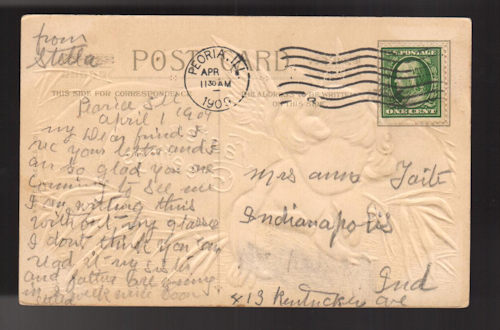 from
Stella
POST CARD
THIS SIDE FOR CORRESPONDENCE
THE ADDRESS TO BE WRITTEN
ON THIS
PEORIA, ILL.
APR
1
11 30 AM
1909
U.S. POSTAGE
ONE CENT
Ill
April 1 1909
my Dear friend I
your letter and I
am so glad you are
coming to see me
I am writing this
without my glasses
I dont think you can
read it my
and father are
in a week
Mrs anna Taite
Indianapolis
Ind
413 Kentuckey ave